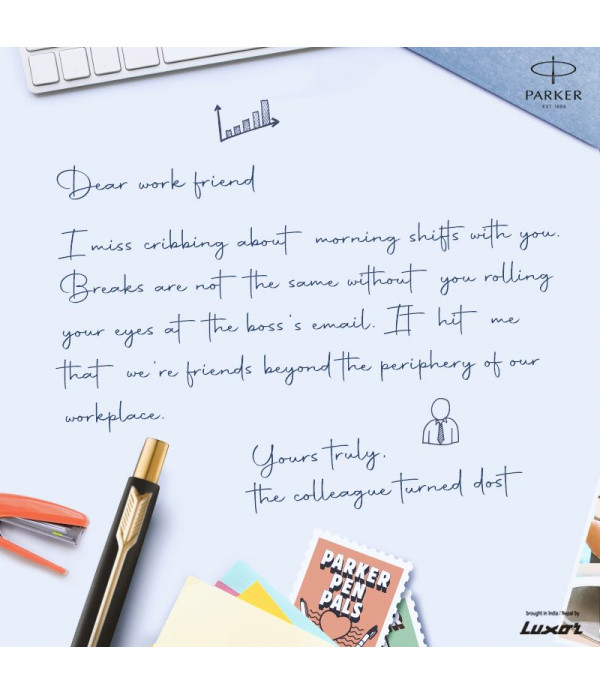 PARKER
EST. 1888
Dear work friend
I miss cribbing about morning shifts with you.
Breaks are not the same without you rolling
your eyes at the boss's email. It hit me
that we're friends beyond the periphery of our
workplace.
Yours truly,
the colleague turned dost
PARKER
PEN
PALS
brought in India / Nepal by
Luxor